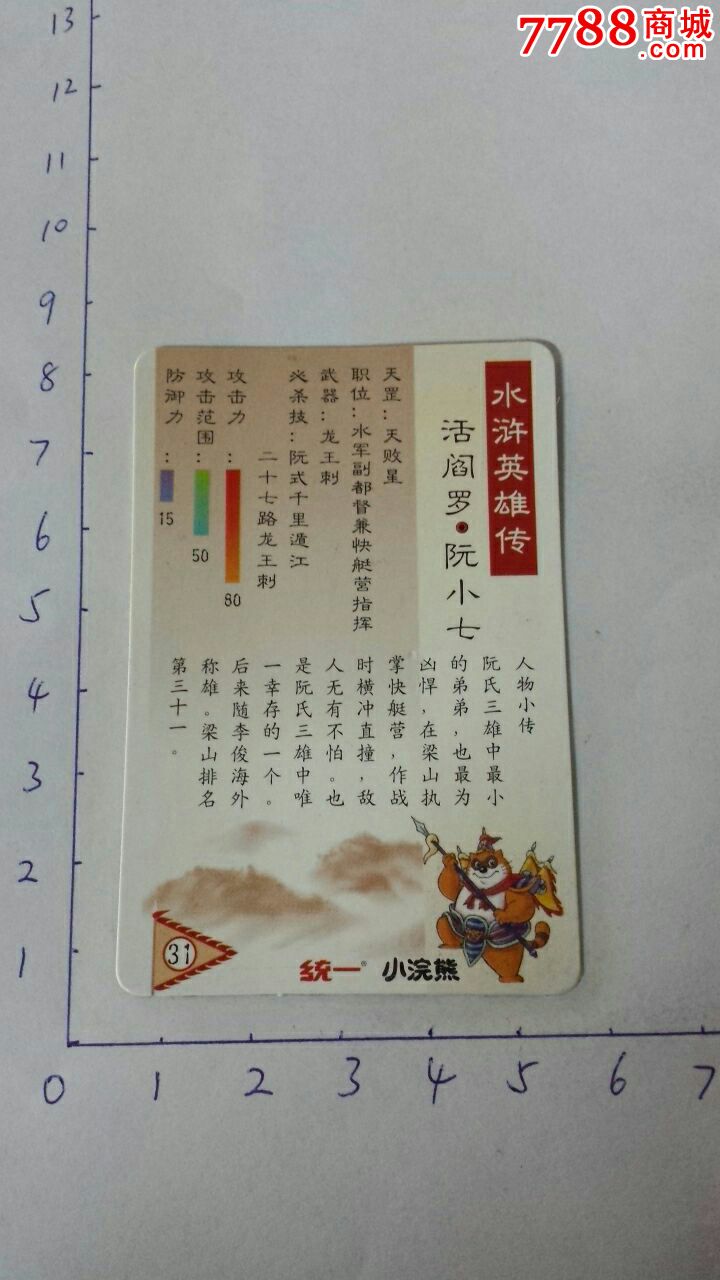 7788商城
.com
13
12
11
10
9
8
7
6
5
4
3
2
1
0
1
2
3
4
5
6
7
水浒英雄传
活阎罗·阮小七
天罡:天败星
职位:水军副都督兼快艇营指挥
武器:龙王刺
必杀技:阮式千里遁江
二十七路龙王刺
攻击力:
80
攻击范围:
50
防御力:
15
人物小传
阮氏三雄中最小
的弟弟,也最为
凶悍,在梁山执
掌快艇营,作战
时横冲直撞,敌
人无有不怕。也
是阮氏三雄中唯
一幸存的一个。
后来随李俊海外
称雄。梁山排名
第三十一。
31
统一® 小浣熊